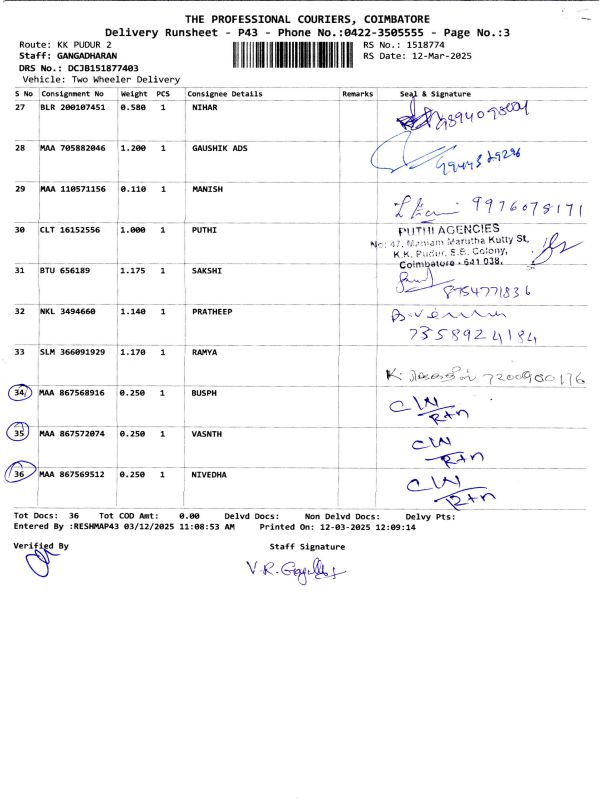 THE PROFESSIONAL COURIERS, COIMBATORE
Delivery Runsheet - P43 - Phone No.:0422-3505555 - Page No.:3
Route: KK PUDUR 2 RS No.: 1518774
Staff: GANGADHARAN RS Date: 12-Mar-2025
DRS No.: DCJB151877403
Vehicle: Two Wheeler Delivery
S No Consignment No Weight PCS Consignee Details Remarks Seal & Signature
27 BLR 200107451 0.580 1 NIHAR
28 MAA 705882046 1.200 1 GAUSHIK ADS
29 MAA 110571156 0.110 1 MANISH
9976078171
30 CLT 16152556 1.000 1 PUTHI PUTHI AGENCIES
No: 47, Maniam Marutha Kutty St,
K.K. Pudur, S.B. Colony,
Coimbatore - 641 038.
31 BTU 656189 1.175 1 SAKSHI
8754771836
32 NKL 3494660 1.140 1 PRATHEEP
7358924184
33 SLM 366091929 1.170 1 RAMYA
7200980176
34 MAA 867568916 0.250 1 BUSPH
Rtn
35 MAA 867572074 0.250 1 VASNTH
Rtn
36 MAA 867569512 0.250 1 NIVEDHA
Rtn
Tot Docs: 36 Tot COD Amt: 0.00 Delvd Docs: Non Delvd Docs: Delvy Pts:
Entered By :RESHMAP43 03/12/2025 11:08:53 AM Printed On: 12-03-2025 12:09:14
Verified By Staff Signature
V.R.